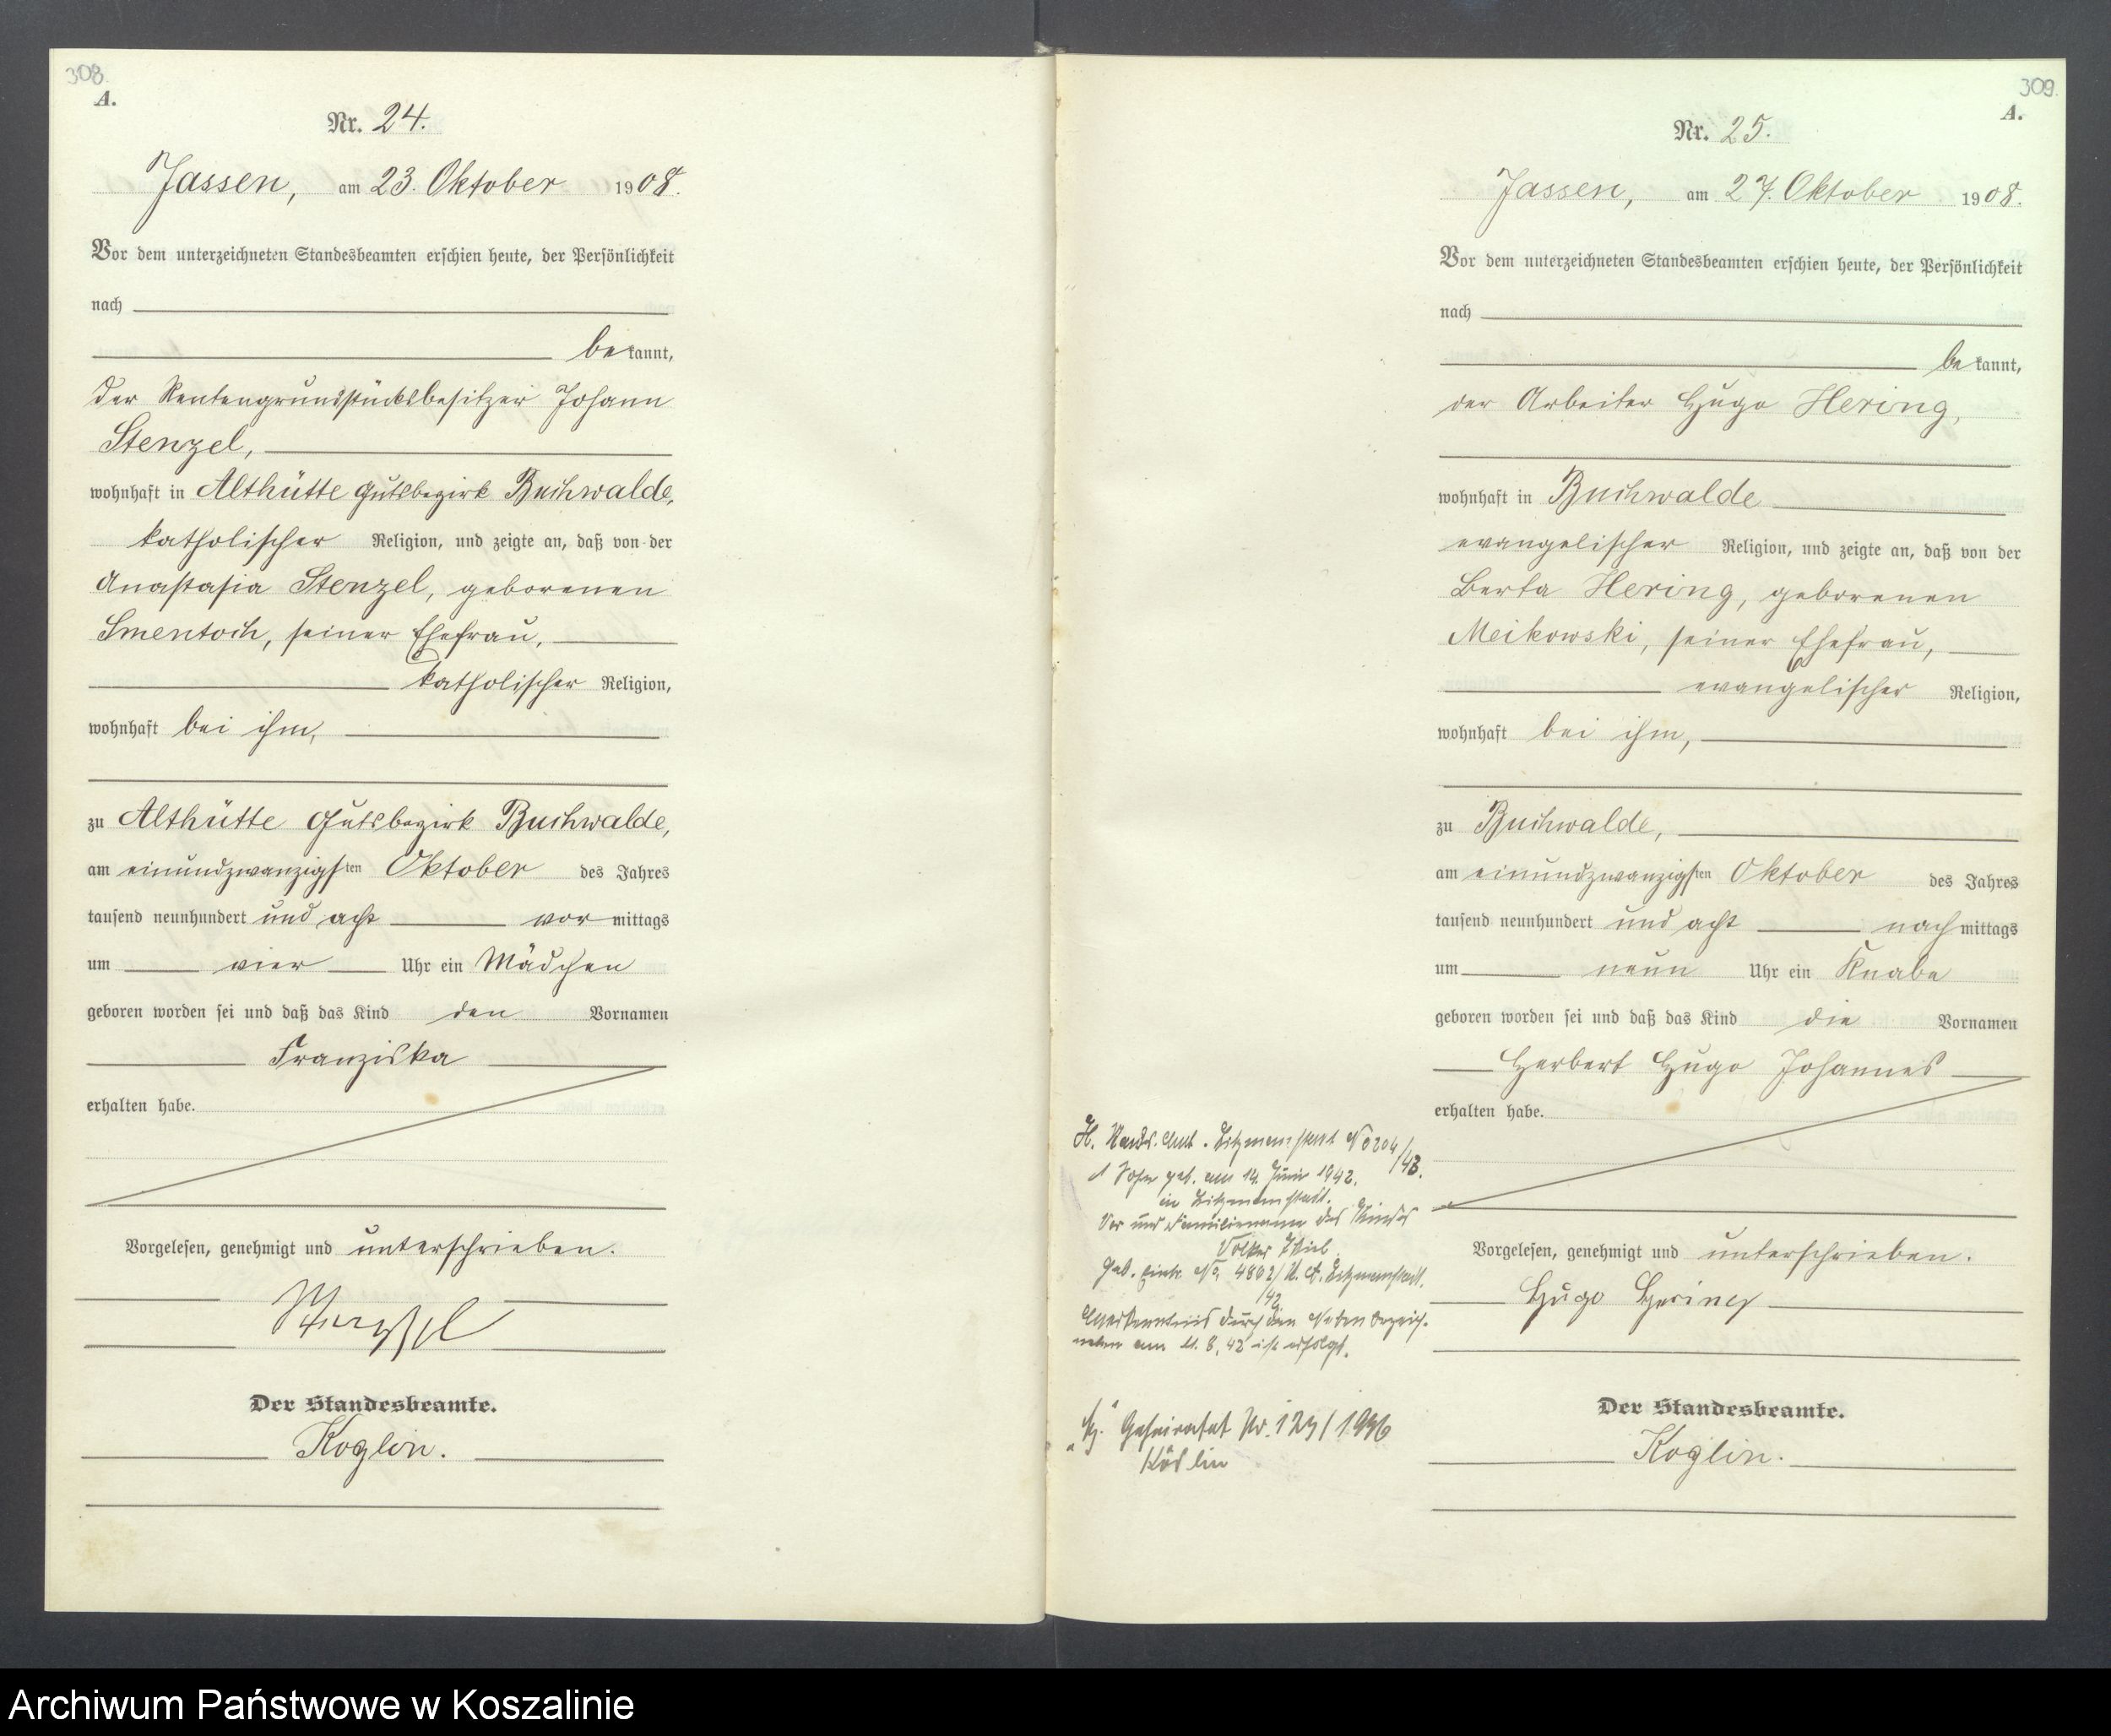 308.
A.
Nr. 24.
Jassen, am 23. Oktober 1908.
Vor dem unterzeichneten Standesbeamten erschien heute, der Persönlichkeit
nach
bekannt,
der Rentengrundstücksbesitzer Johann
Stenzel,
wohnhaft in Althütte Gutsbezirk Buchwalde,
katholischer Religion, und zeigte an, daß von der
Anastasia Stenzel, geborenen
Smentoch, seiner Ehefrau,
katholischer Religion,
wohnhaft bei ihm,
zu Althütte Gutsbezirk Buchwalde,
am einundzwanzigsten Oktober des Jahres
tausend neunhundert und acht vormittags
um vier Uhr ein Mädchen
geboren worden sei und daß das Kind den Vornamen
Franziska
erhalten habe.
Vorgelesen, genehmigt und unterschrieben.
Der Standesbeamte.
Koglin.
309.
A.
Nr. 25.
Jassen, am 27. Oktober 1908.
Vor dem unterzeichneten Standesbeamten erschien heute, der Persönlichkeit
nach
bekannt,
der Arbeiter Hugo Hering,
wohnhaft in Buchwalde
evangelischer Religion, und zeigte an, daß von der
Berta Hering, geborenen
Meikowski, seiner Ehefrau,
evangelischer Religion,
wohnhaft bei ihm,
zu Buchwalde,
am einundzwanzigsten Oktober des Jahres
tausend neunhundert und acht nachmittags
um neun Uhr ein Knabe
geboren worden sei und daß das Kind die Vornamen
Herbert Hugo Johannes
erhalten habe.
Vorgelesen, genehmigt und unterschrieben.
Hugo Hering
Der Standesbeamte.
Koglin.
Litzmannstadt No 204/43.
1 Sohn geb. am 14. Juni 1942.
in Litzmannstadt.
Vor und Familienname des Kindes
Volker
4802/ Litzmannstadt.
/42
durch den Nebenbezeich-
neten am 11. 8. 42 ist erfolgt.
Geheiratet Nr. 123/1936
Köslin
Archiwum Państwowe w Koszalinie